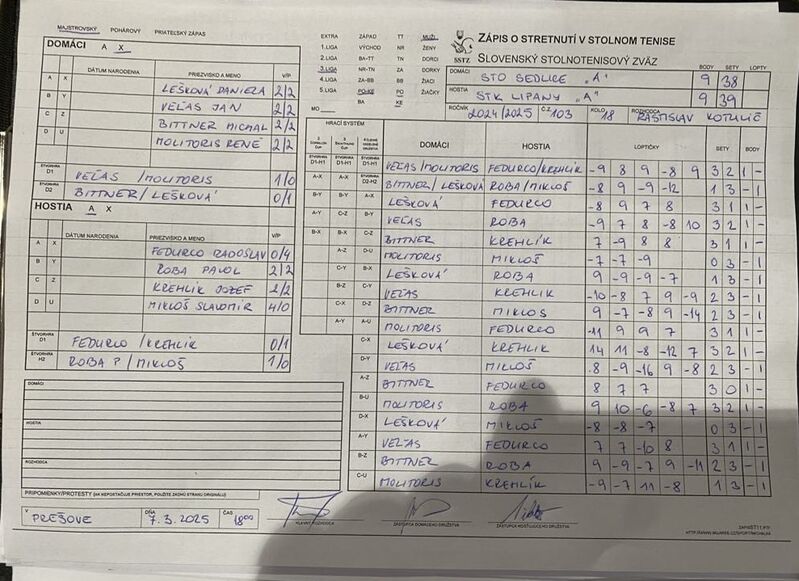 MAJSTROVSKÝ POHÁROVÝ PRIATEĽSKÝ ZÁPAS
DOMÁCI A X
DÁTUM NARODENIA PRIEZVISKO A MENO V/P
A X LEŠKOVÁ DANIELA 2/2
B Y VEĽAS JÁN 2/2
C Z BITTNER MICHAL 2/2
D U MOLITORIS RENÉ 2/2
ŠTVORHRA D1 VEĽAS /MOLITORIS 1/0
ŠTVORHRA D2 BITTNER/LEŠKOVÁ 0/1
HOSTIA A X
DÁTUM NARODENIA PRIEZVISKO A MENO V/P
A X FEDURCO RADOSLAV 0/4
B Y ROBA PAVOL 2/2
C Z KREHLÍK JOZEF 2/2
D U MIKLOŠ SLAVOMÍR 4/0
ŠTVORHRA D1 FEDURCO /KREHLÍK 0/1
ŠTVORHRA H2 ROBA P/MIKLOŠ 1/0
DOMÁCI
HOSTIA
ROZHODCA
PRIPOMIENKY/PROTESTY (AK NEPOSTAČUJE PRIESTOR, POUŽITE ZADNÚ STRANU ORIGINÁLU)
V PREŠOVE DŇA 7.3.2025 ČAS 18⁰⁰
HLAVNÝ ROZHODCA
ZÁSTUPCA DOMÁCEHO DRUŽSTVA
ZÁSTUPCA HOSŤUJÚCEHO DRUŽSTVA
EXTRA ZÁPAD TT MUŽI
1.LIGA VÝCHOD NR ŽENY
2.LIGA BA-TT TN DORCI
3.LIGA NR-TN ZA DORKY
4.LIGA ZA-BB BB ŽIACI
5.LIGA PO-KE PO ŽIAČKY
MO BA KE
SSTZ
ZÁPIS O STRETNUTÍ V STOLNOM TENISE
SLOVENSKÝ STOLNOTENISOVÝ ZVÄZ
BODY SETY LOPTY
DOMÁCI STO SEDLICE "A" 9 38
HOSTIA STK LIPANY "A" 9 39
ROČNÍK 2024/2025 Č.Z 103 KOLO 18 ROZHODCA RASTISLAV KOTULIČ
HRACÍ SYSTÉM
DOMÁCI HOSTIA LOPTIČKY SETY BODY
D1-H1 D1-H1 D1-H1 VEĽAS/MOLITORIS FEDURCO/KREHLÍK -9 8 9 -8 9 3 2 1 -
A-X A-X D2-H2 BITTNER/LEŠKOVÁ ROBA/MIKLOŠ -8 9 -9 -12 1 3 - 1
B-Y B-Y A-X LEŠKOVÁ FEDURCO -8 9 7 8 3 1 1 -
A-Y C-Z B-Y VEĽAS ROBA -9 7 8 -8 10 3 2 1 -
B-X B-X C-Z BITTNER KREHLÍK 7 -9 8 8 3 1 1 -
A-Z D-U MOLITORIS MIKLOŠ -7 -7 -9 0 3 - 1
C-Y B-X LEŠKOVÁ ROBA 9 -9 -9 -7 1 3 - 1
B-Z C-Y VEĽAS KREHLÍK -10 -8 7 9 -9 2 3 - 1
C-X D-Z BITTNER MIKLOŠ 9 -7 -8 9 -14 2 3 - 1
A-Y A-U MOLITORIS FEDURCO -11 9 9 7 3 1 1 -
C-X LEŠKOVÁ KREHLÍK 14 11 -8 -12 7 3 2 1 -
D-Y VEĽAS MIKLOŠ 8 -9 -16 9 -8 2 3 - 1
A-Z BITTNER FEDURCO 8 7 7 3 0 1 -
B-U MOLITORIS ROBA 9 10 -6 -8 7 3 2 1 -
D-X LEŠKOVÁ MIKLOŠ -8 -8 -7 0 3 - 1
A-Y VEĽAS FEDURCO 7 7 -10 8 3 1 1 -
B-Z BITTNER ROBA 9 -9 -7 9 -11 2 3 - 1
C-U MOLITORIS KREHLÍK -9 -7 11 -8 1 3 - 1